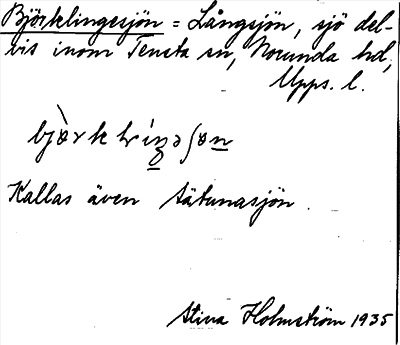 Björklingesjön = Långsjön, sjö del-
vis inom Tensta sn, Norunda hd,
Upps. l.
Kallas även Sätunasjön.
Stina Holmström 1935